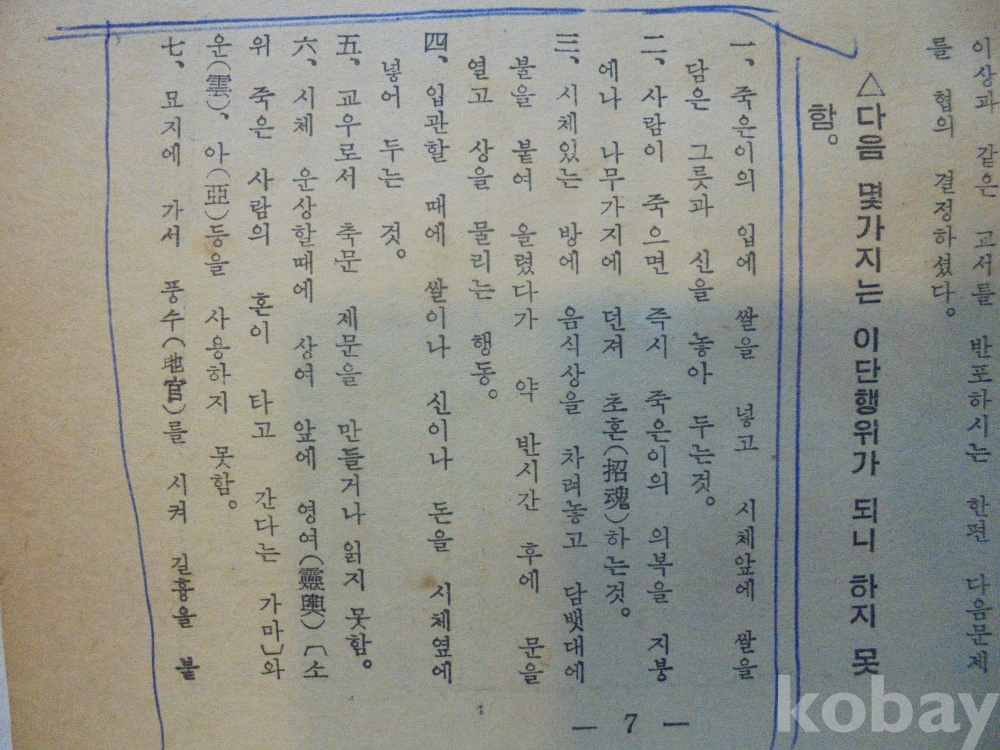 이상과 같은 교서를 반포하시는 한편 다음문제
를 협의 결정하셨다.
△다음 몇가지는 이단행위가 되니 하지 못
함.
一、죽은이의 입에 쌀을 넣고 시체앞에 쌀을
담은 그릇과 신을 놓아 두는것.
二、사람이 죽으면 즉시 죽은이의 의복을 지붕
에나 나무가지에 던져 초혼(招魂)하는것.
三、시체있는 방에 음식상을 차려놓고 담뱃대에
불을 붙여 올렸다가 약 반시간 후에 문을
열고 상을 물리는 행동.
四、입관할 때에 쌀이나 신이나 돈을 시체옆에
넣어 두는 것.
五、교우로서 축문 제문을 만들거나 읽지 못함.
六、시체 운상할때에 상여 앞에 영여(靈輿)〔소
위 죽은 사람의 혼이 타고 간다는 가마〕와
운(雲)、아(亞)등을 사용하지 못함.
七、묘지에 가서 풍수(地官)를 시켜 길흉을 붙
— 7 —
kobay